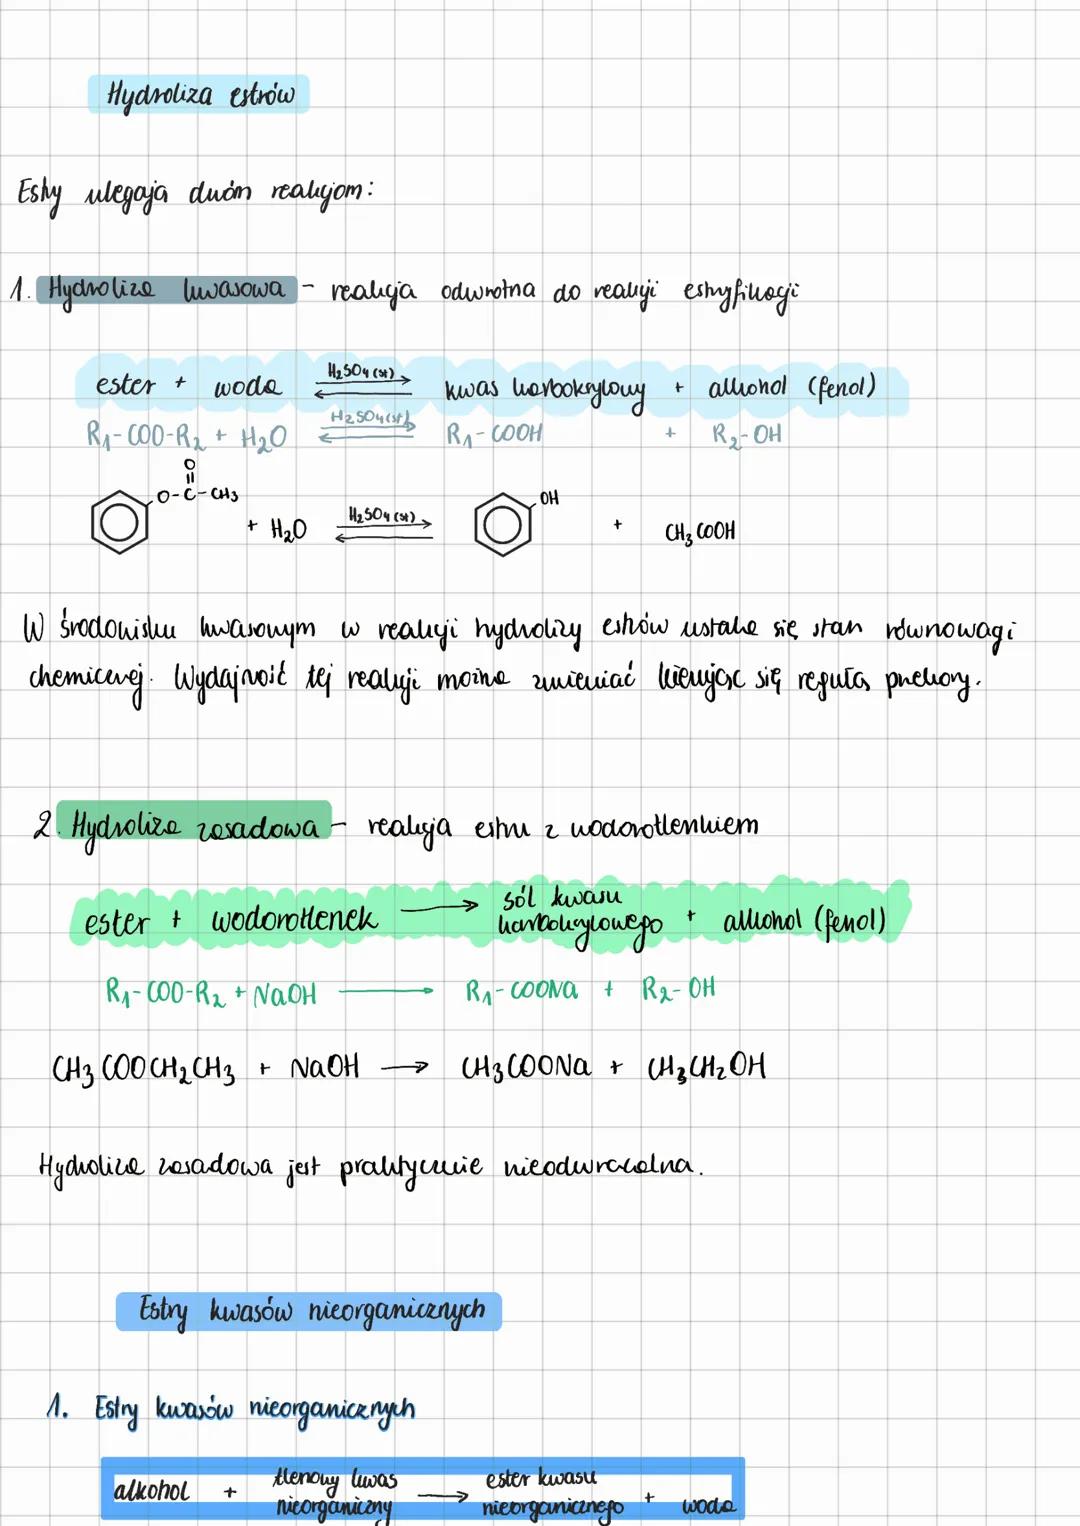 Hydroliza estrów
Estry ulegają dwóm reakcjom:
1. Hydroliza kwasowa - reakcja odwrotna do reakcji estryfikacji
ester + woda ⇄ H2SO4 (st) kwas karboksylowy + alkohol (fenol)
R1-COO-R2 + H2O ⇄ H2SO4 (st) R1-COOH + R2-OH
O
O-C-CH3 + H2O ⇄ H2SO4 (st) OH + CH3COOH
W środowisku kwasowym w reakcji hydrolizy estrów ustala się stan równowagi
chemicznej. Wydajność tej reakcji można zmieniać kierując się regułą przekory.
2. Hydroliza zasadowa - reakcja estru z wodorotlenkiem
ester + wodorotlenek → sól kwasu karboksylowego + alkohol (fenol)
R1-COO-R2 + NaOH → R1-COONa + R2-OH
CH3COOCH2CH3 + NaOH → CH3COONa + CH3CH2OH
Hydroliza zasadowa jest praktycznie nieodwracalna.
Estry kwasów nieorganicznych
1. Estry kwasów nieorganicznych
alkohol + tlenowy kwas nieorganiczny → ester kwasu nieorganicznego + woda